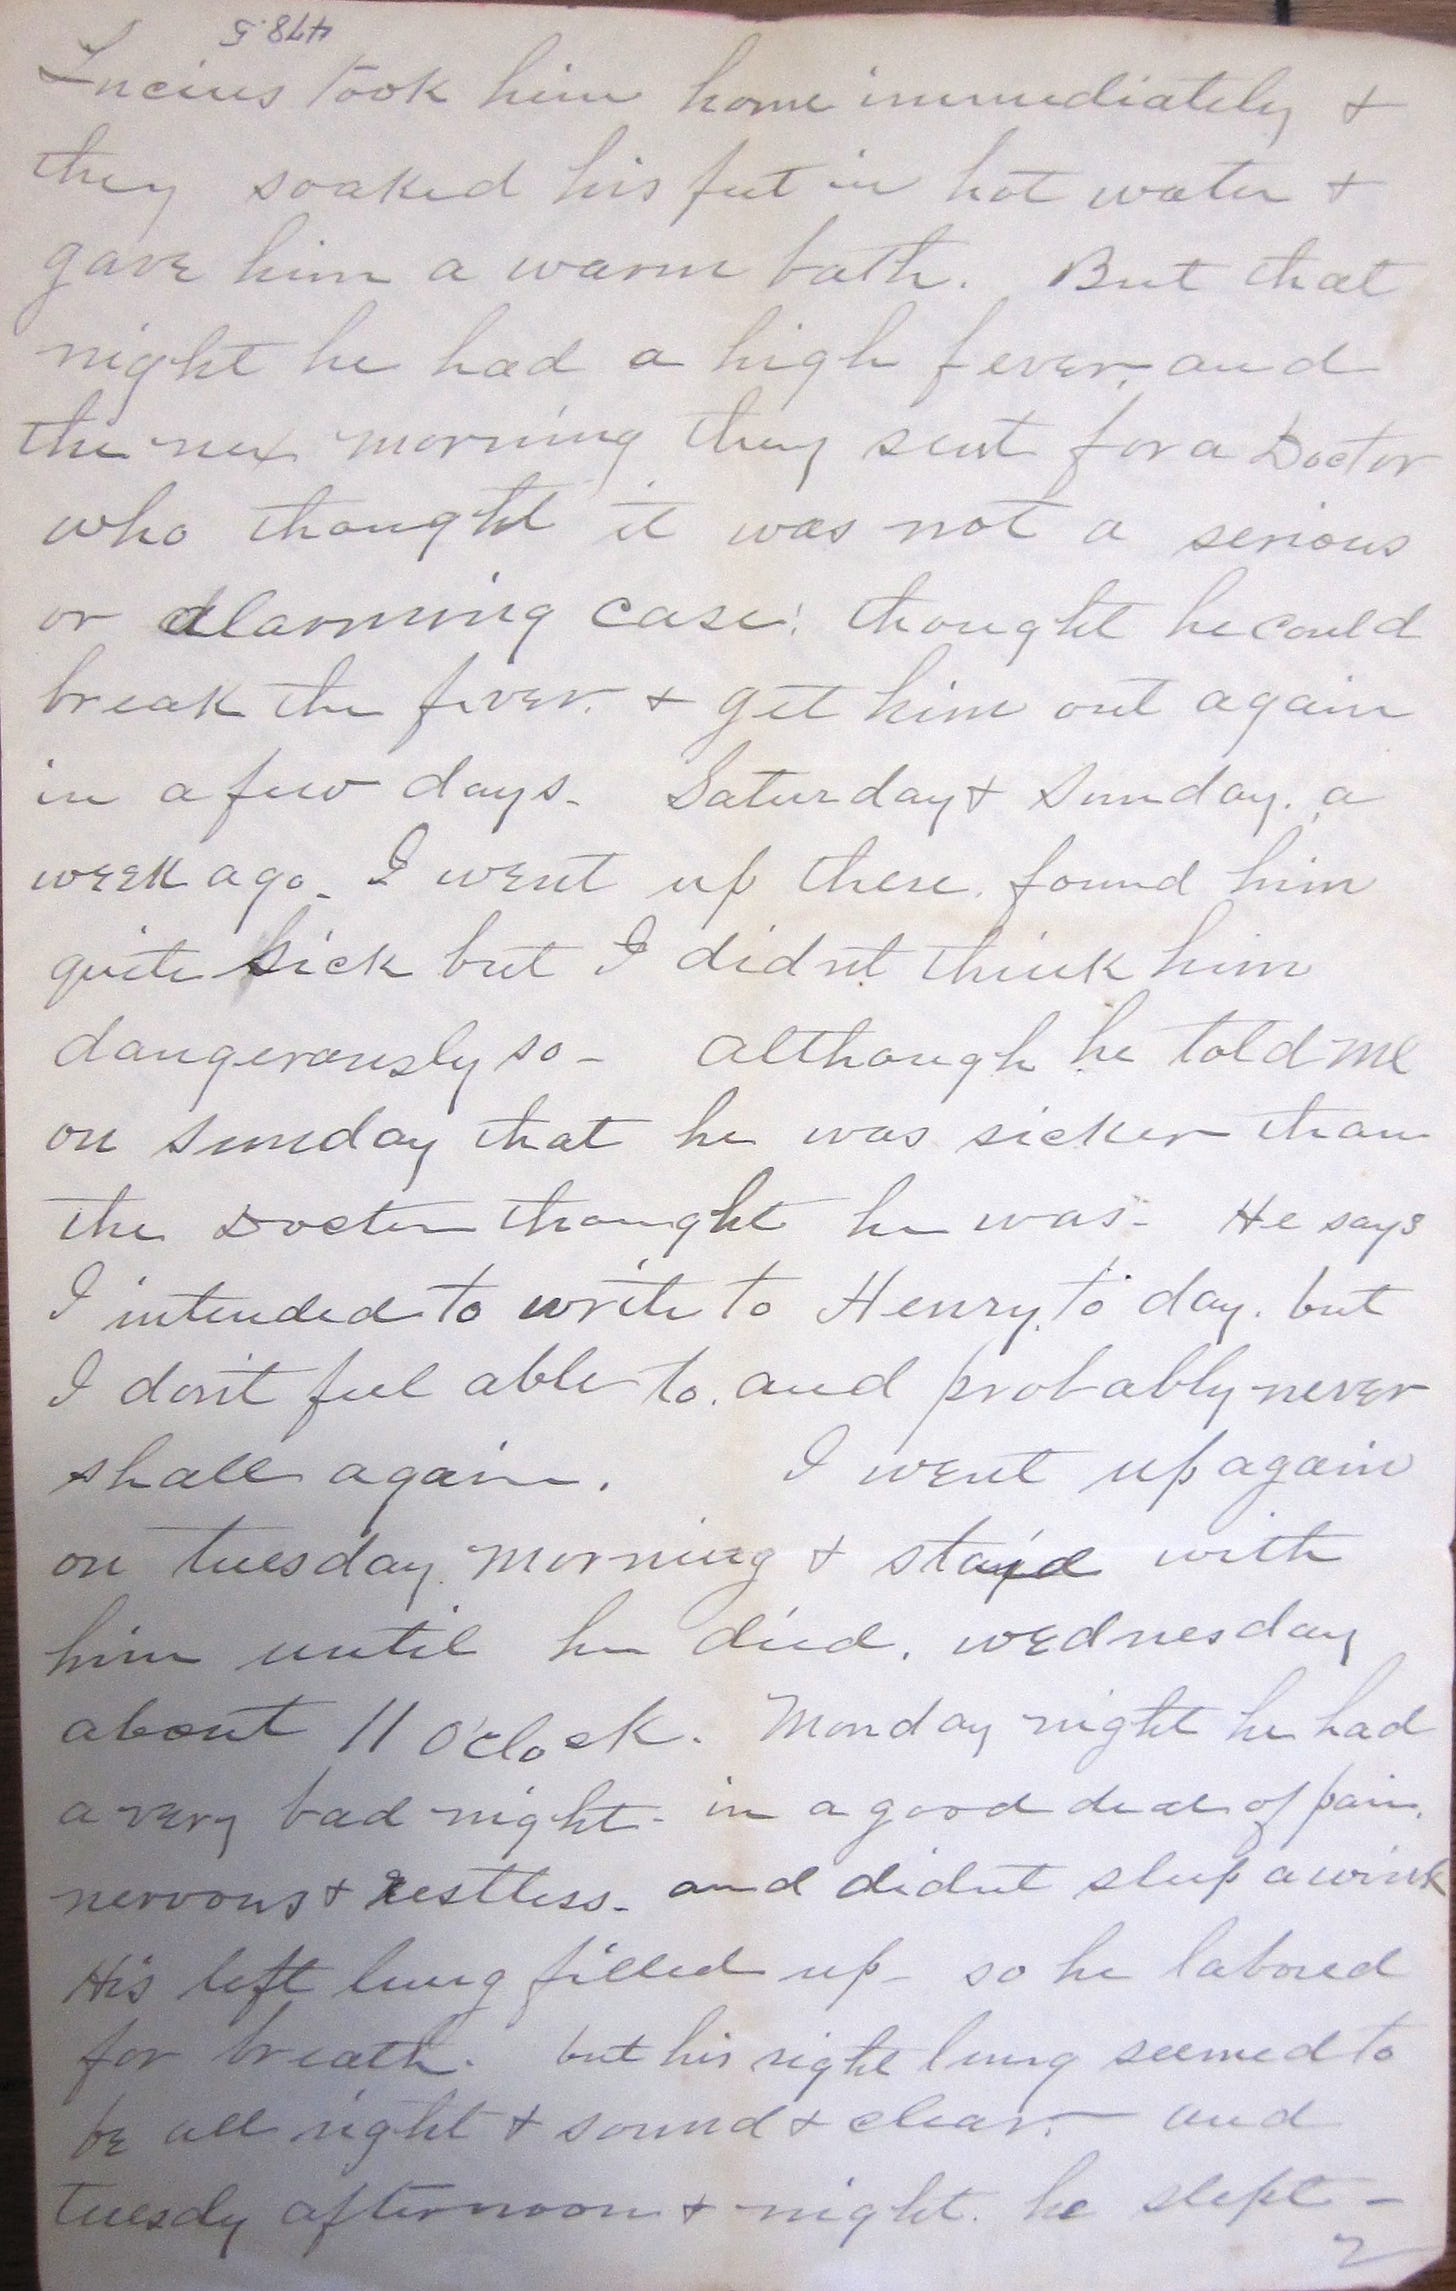 478.5
Lucius took him home immediately +
they soaked his feet in hot water +
gave him a warm bath. But that
night he had a high fever, and
the nex morning they sent for a Doctor
who thought it was not a serious
or alarming case: thought he could
break the fever. + get him out again
in a few days - Saturday + Sunday. a
week ago - I went up there. found him
quite sick but I didn't think him
dangerously so - although he told me
on Sunday that he was sicker than
the Doctor thought he was - He says
I intended to write to Henry, to day. but
I don't feel able to. and probably never
shall again. I went up again
on tuesday morning + stayd with
him until he died. wednesday
about 11 O'clock. Monday night he had
a very bad night - in a good deal of pain.
nervous + restless - and didn't sleep a wink
His left lung filled up - so he labored
for breath. but his right lung seemed to
be all right + sound + clear. - and
tuesdy afternoon + night. he slept -
2